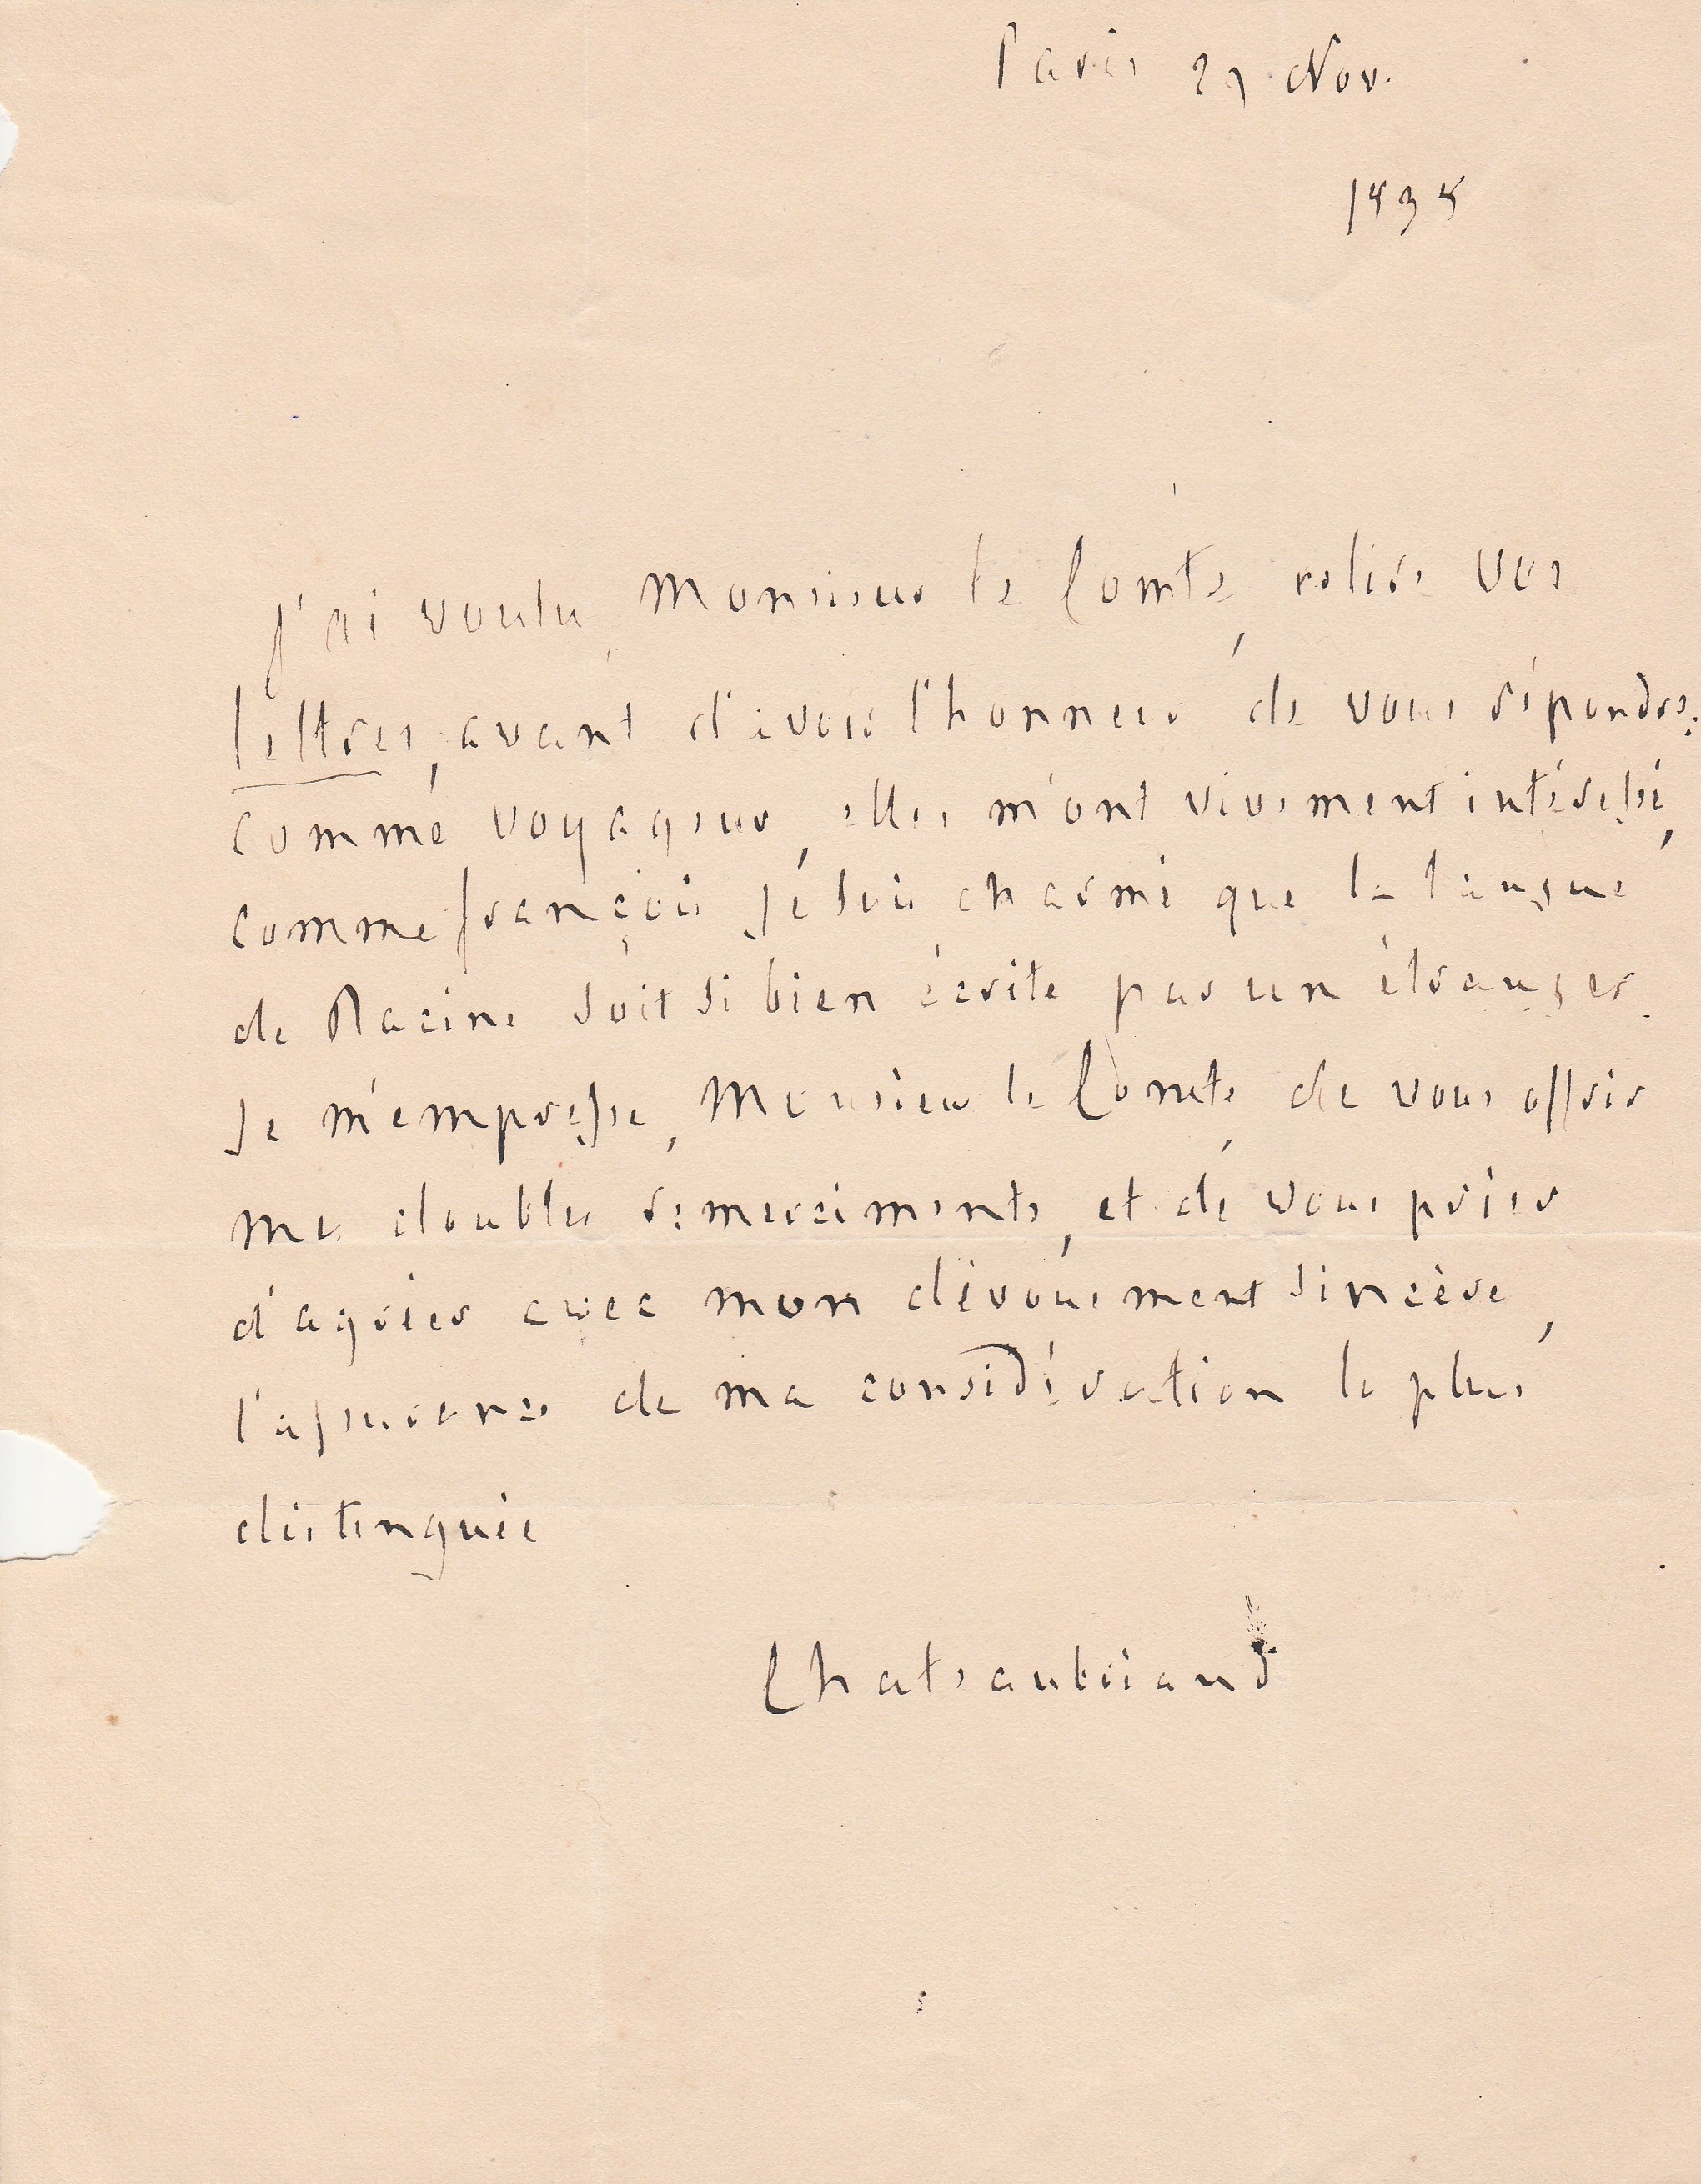 Paris 29 Nov.
1835
J'ai voulu, Monsieur le Comte, relire vos
lettres, avant d'avoir l'honneur de vous répondre:
comme voyageur, elles m'ont vivement intéressé,
comme françois je suis charmé que la langue
de Racine soit si bien écrite par un étranger.
Je m'empresse, Monsieur le Comte, de vous offrir
mes doubles remerciments, et de vous prier
d'agréer avec mon dévouement sincère,
l'assurance de ma considération la plus
distinguée
Chateaubriand